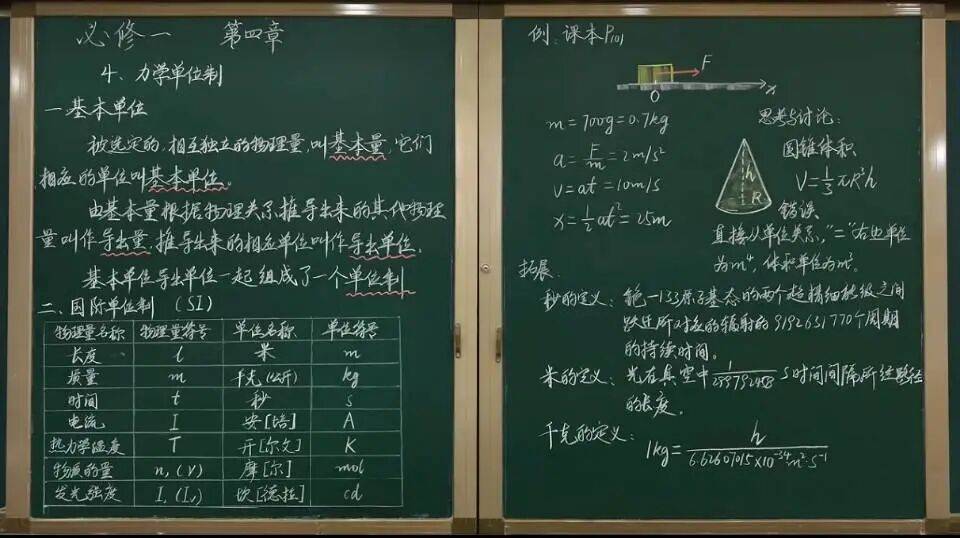 必修一 第四章
4、力学单位制
一 基本单位
被选定的,相互独立的物理量,叫基本量,它们
相应的单位叫基本单位。
由基本量根据物理关系推导出来的其他物理
量叫作导出量,推导出来的相应单位叫作导出单位。
基本单位导出单位一起组成了一个单位制
二、国际单位制 (SI)
物理量名称 物理量符号 单位名称 单位符号
长度 l 米 m
质量 m 千克(公斤) kg
时间 t 秒 s
电流 I 安[培] A
热力学温度 T 开[尔文] K
物质的量 n,(ν) 摩[尔] mol
发光强度 I,(Iᵥ) 坎[德拉] cd
例:课本P101
F
O x
m=700g=0.7kg
a=F/m=2m/s²
v=at=10m/s
x=1/2at²=25m
思考与讨论:
圆锥体积
V=1/3πR³h
h
R
错误
直接从单位关系,“=”右边单位
为m⁴,体积单位为m³。
拓展:
秒的定义:铯-133原子基态的两个超精细能级之间
跃迁所对应的辐射的9192631770个周期
的持续时间。
米的定义:光在真空中1/299792458 s时间间隔所经路径
的长度。
千克的定义:
1kg=h/6.62607015×10⁻³⁴m²·s⁻¹